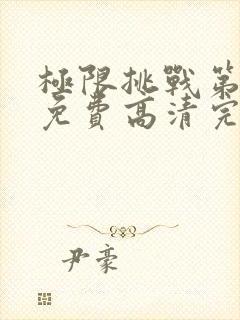 極限挑戰第
免費高清完
尹豪